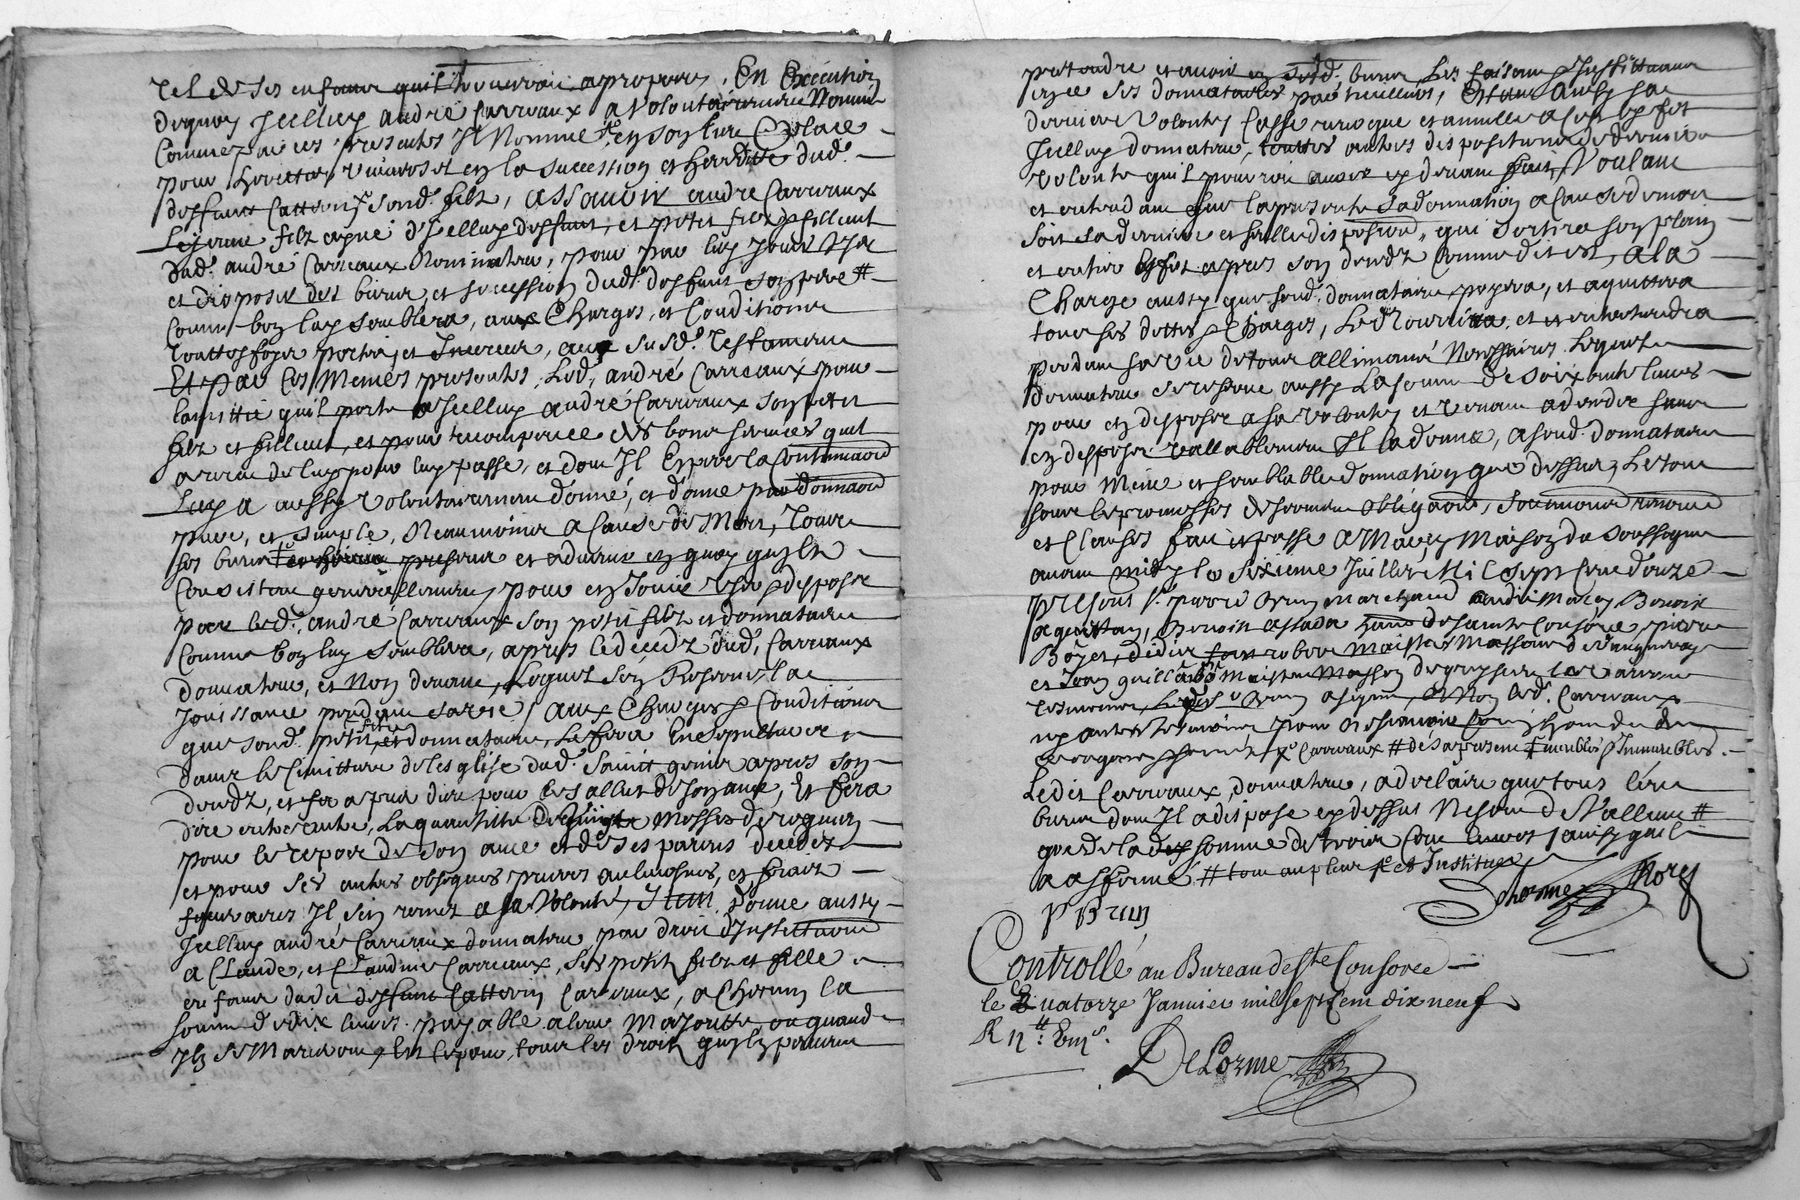 tel de ses enfans quil trouveroit apropos, En Execution
dequoy Jcelluy André Carreaux a volontairement Nommé
Comme par ces presentes Il Nomme en son lieu & place
pour heritier universel en la succession et heredité dud.
deffunt Catterin sond. filz, assavoir andre Carreaux
Lejeune filz ayné d'Jcelluy deffunt, et petit filz & fillieut
dud. andré Carreaux Nominateur, pour par luy Jouir User
et disposer des biens et succession dud. deffunt son pere #
comme bon luy semblera, aux Charges, et Conditions
Touttesfoys portées et Inserées, aux susd. Testament
Et par Ces Memes presentes, Led. andré Carreaux pour
lamittié quil porte a Jcelluy andré Carreaux son petit
filz et fillieut, et pour recompence des bons services quil
a receu de luy pour luy passe, et dont Il Espere la Continuaon
Luy a aussy volontairement donné, et donne par donnaon
pure, et simple, Neanmoins a Cause de Mort, Tous
ses biens presens et advenir en quoy quils
Consistent generallement pour en Jouir User & disposer
par led. andré Carreaux son petit filz et donnataire
comme bon luy semblera, apres le decedz dud. Carreaux
donnateur, et Non devant, Lequel s'en Reserve la
Jouissance pendant sa vie, aux Charges & Conditions
que sond. petit filz et donnataire, Le fera Ensepulturer
dans le Cimittiere de lesglise dud. Sainct genis apres son
decedz, et fera prier dieu pour les allut de son ame, Et fera
dire et celebrer, La quantitté de Messes de requiem
pour le repos de son ame et de ses parens decedez
et pour ses autres obseques prieres aulmosnes, et fraix
funeraires Il s'en remet a sa Volonté, Item donne aussy
Jcelluy andré Carreaux donnateur par droit d'Instituaon
a Claude, et Claudine Carreaux, ses petit filz et fille
enfans dudit deffunt Catterin Carreaux, a Chacun la
somme de dix livres payable a leur Majorité ou quand
Ilz se Marieront, Et Ce pour tous les droits quils peuvent
pretendre et avoir en sesd. biens, Les faisant & Instittuant
ses donnataires particuliers, Estant aussy sa
derniere Volonté, Casse revocque et annulle a Cest Effet
Jcelluy donnateur, touttes autres dispositions de derniere
volonté quil pourroit avoir cy devant fait, Voulant
et entendant que la presente sa donnation a Cause de mort
soit sa derniere et seulle disposition, qui sortira son plain
et entier Effet apres son decedz Comme dit est, a la
Charge aussy que sond. donnataire, payera, et aquittera
tous ses dettes & Charges, Le Nourrira, et entretiendra
pendant sa vie de tous allimens Necessaires. Lequel
donnateur se reserve aussy La somme de soixante livres
pour en disposer a sa volonté, et venant a deceder sans
en disposer vallablement Il la donne, a sond. donnataire
pour Meme et semblable donnation que dessus, Le tout
sous les promesses de serment obligaons, soumissions renonc
et Clauses fait et passé a Marcy Maison du soussigné
avant midy le sixieme Juillet Mil sept Cent douze
presens s. pierre Brun marchand audit Marcy Benoist
aquittan, Benoist de sainte Consorce, pierre
Boyer, didier robert Maistres Massons de Vaugneray
et Jean guill Maistre Masson de greysieu la Varenne
tesmoins, Led. s. Brun a signé, et Non led. Carreaux
ny autres tesmoins pour Ne sçavoir
Carreaux # Desaprieme meubles & Immeubles.
Ledit Carreaux donnateur, a declairé que tous les
biens dont Il a disposé cy dessus Ne sont de Valleur #
que de la somme de trois Cent livres, ainsy quil
a affermé # tout au plus
P BRUN
Controllé au Bureau de Ste Consorce
le Quatorze Janvier mil sept Cent dix neuf
DeLorme